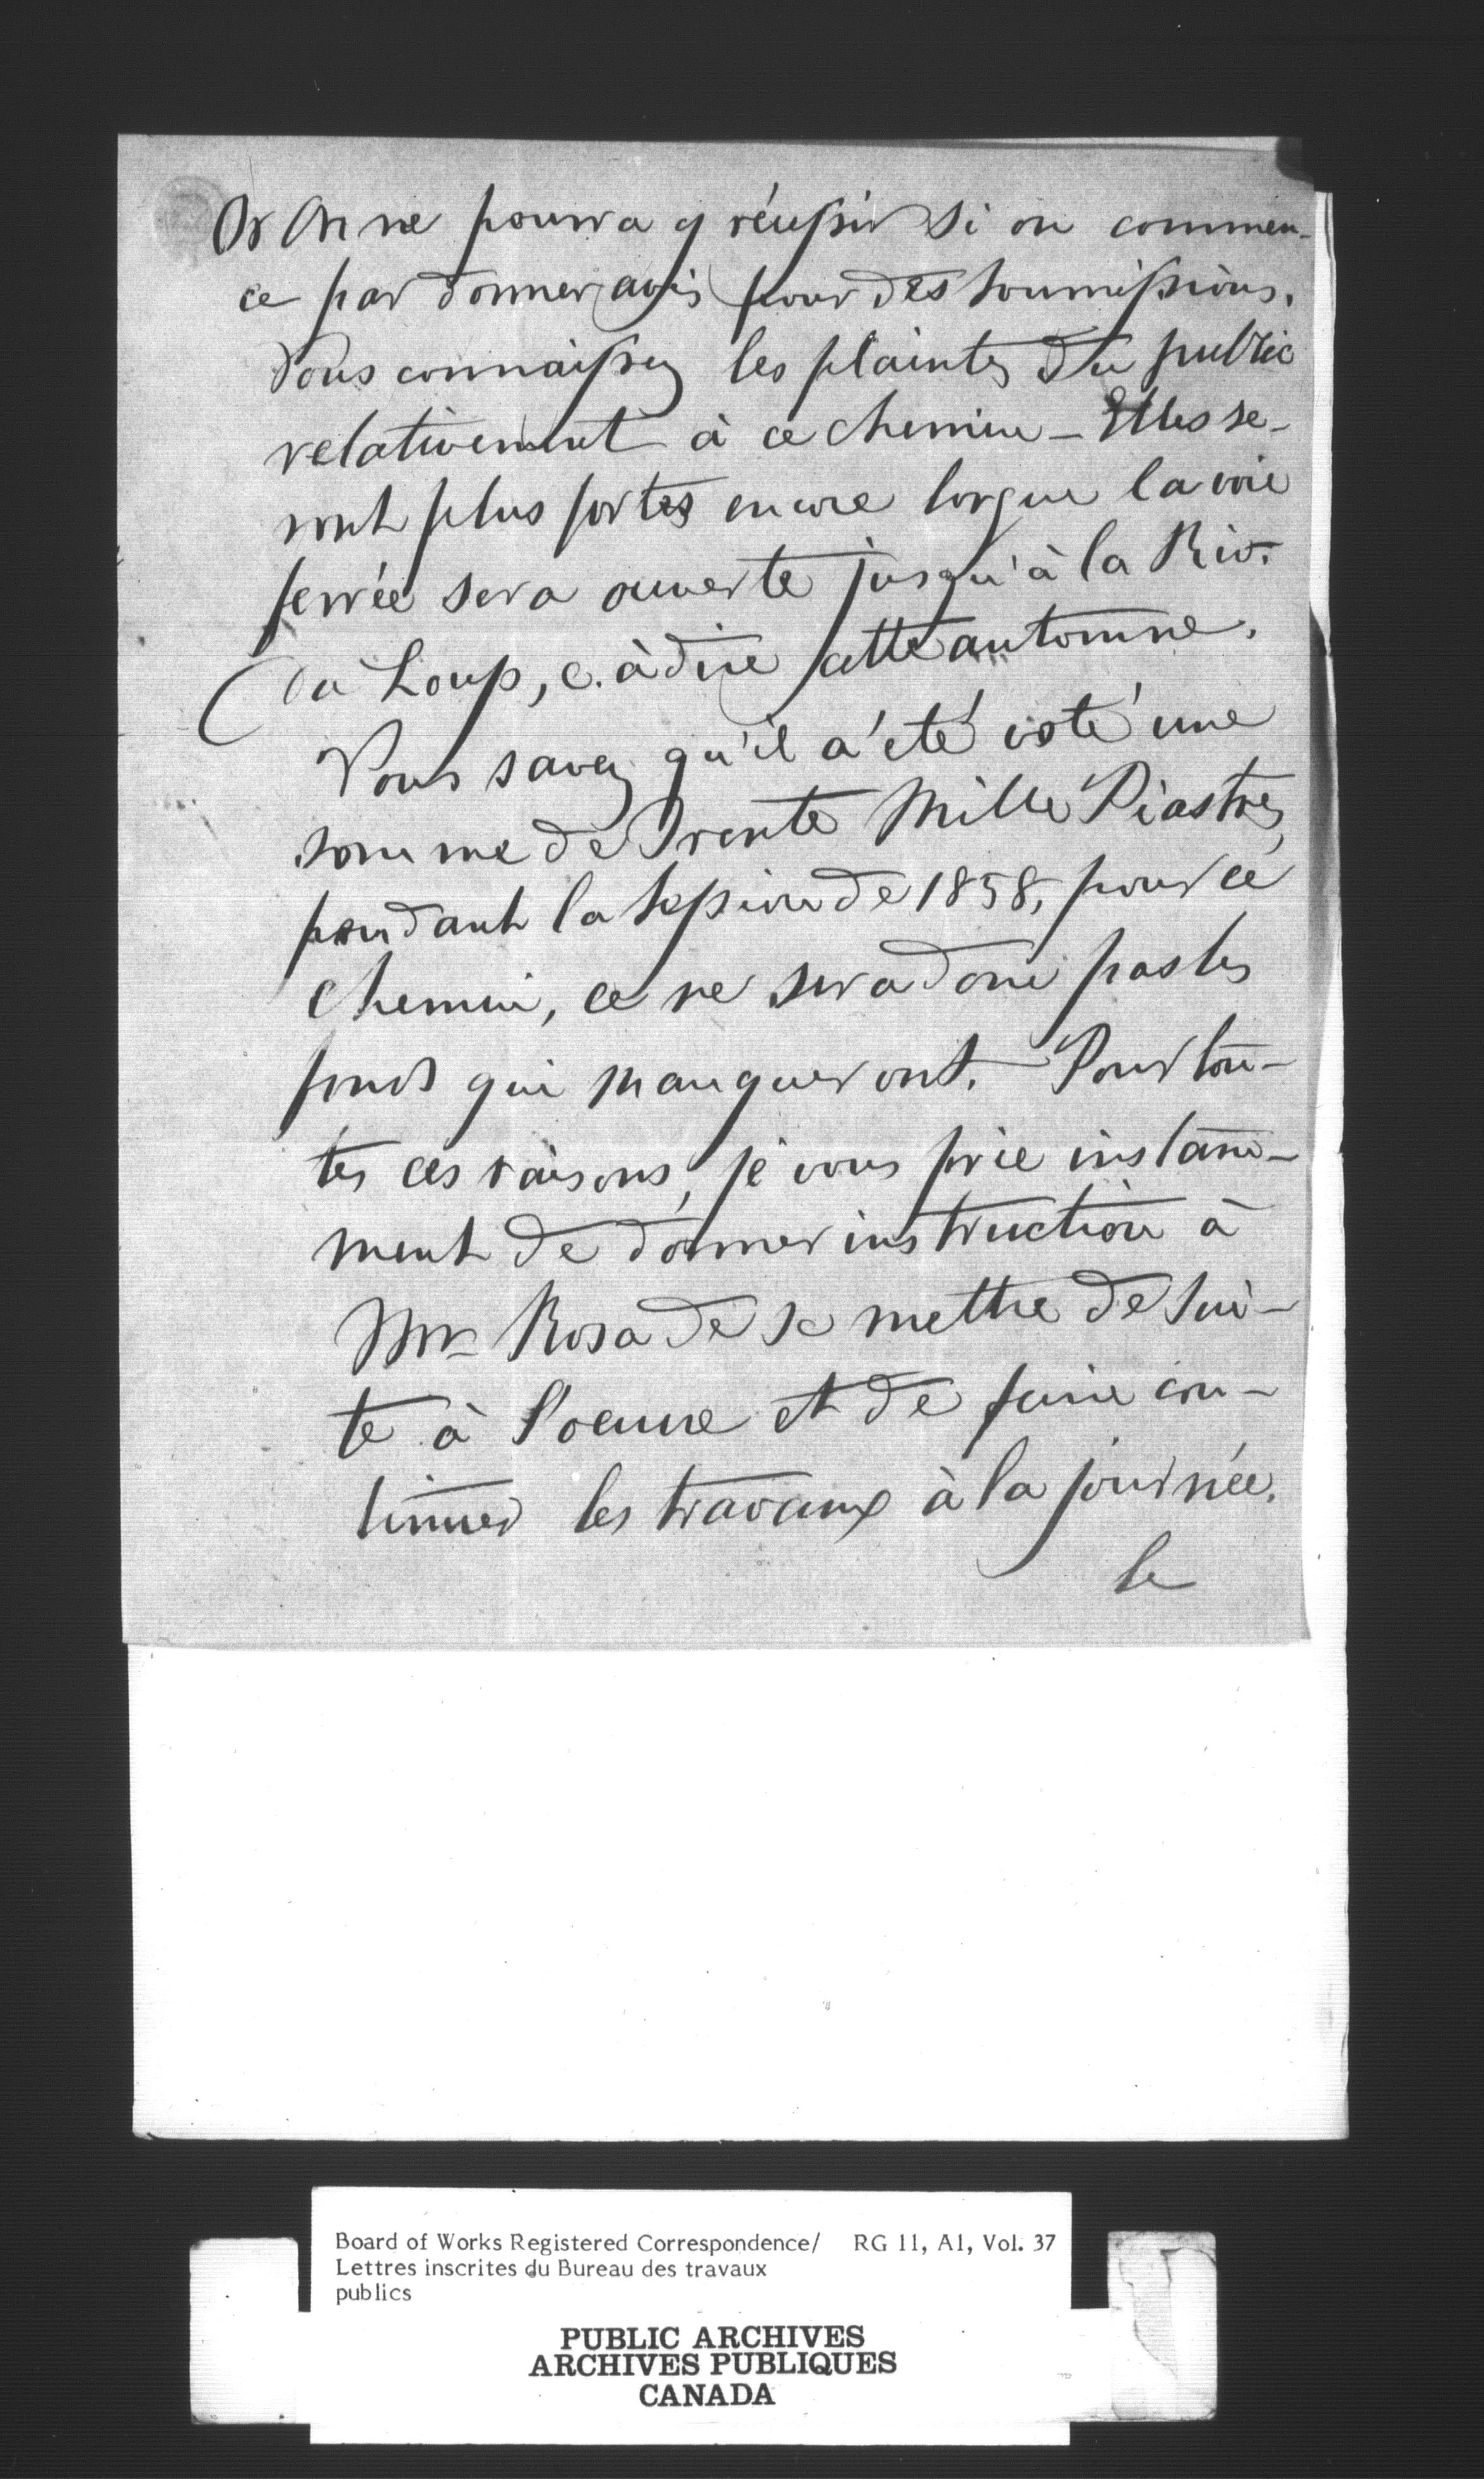 Or On ne pourra y réussir si on commen-
ce par donner avis pour des soumissions.
Vous connaissez les plaintes du public
relativement à ce chemin – Elles se-
ront plus fortes encore lorsque la voie
ferrée sera ouverte jusqu'à la Riv.
du Loup, c. à dire cette automne.
Vous savez qu'il a été voté une
somme de Trente Mille Piastres,
pendant la Session de 1858, pour ce
chemin, ce ne sera donc pas les
fonds qui manqueront. Pour tou-
tes ces raisons, je vous prie instam-
ment de donner instruction à
Mr Rosa de se mettre de sui-
te à l'oeuvre et de faire con-
tinuer les travaux à la journée.
le
Board of Works Registered Correspondence/ RG 11, A1, Vol. 37
Lettres inscrites du Bureau des travaux
publics
PUBLIC ARCHIVES
ARCHIVES PUBLIQUES
CANADA